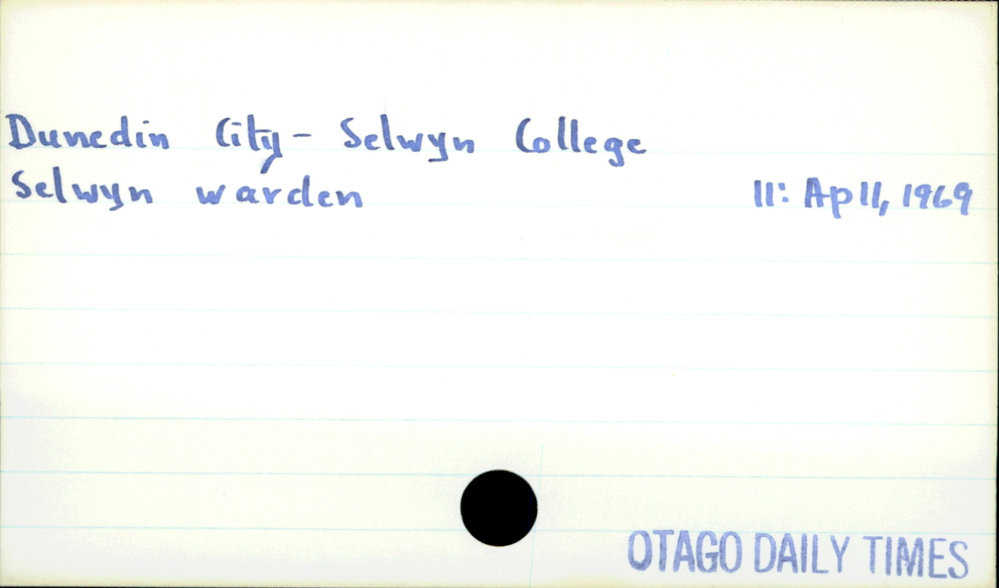 Dunedin City - Selwyn College
Selwyn warden 11: Ap 11, 1969
OTAGO DAILY TIMES